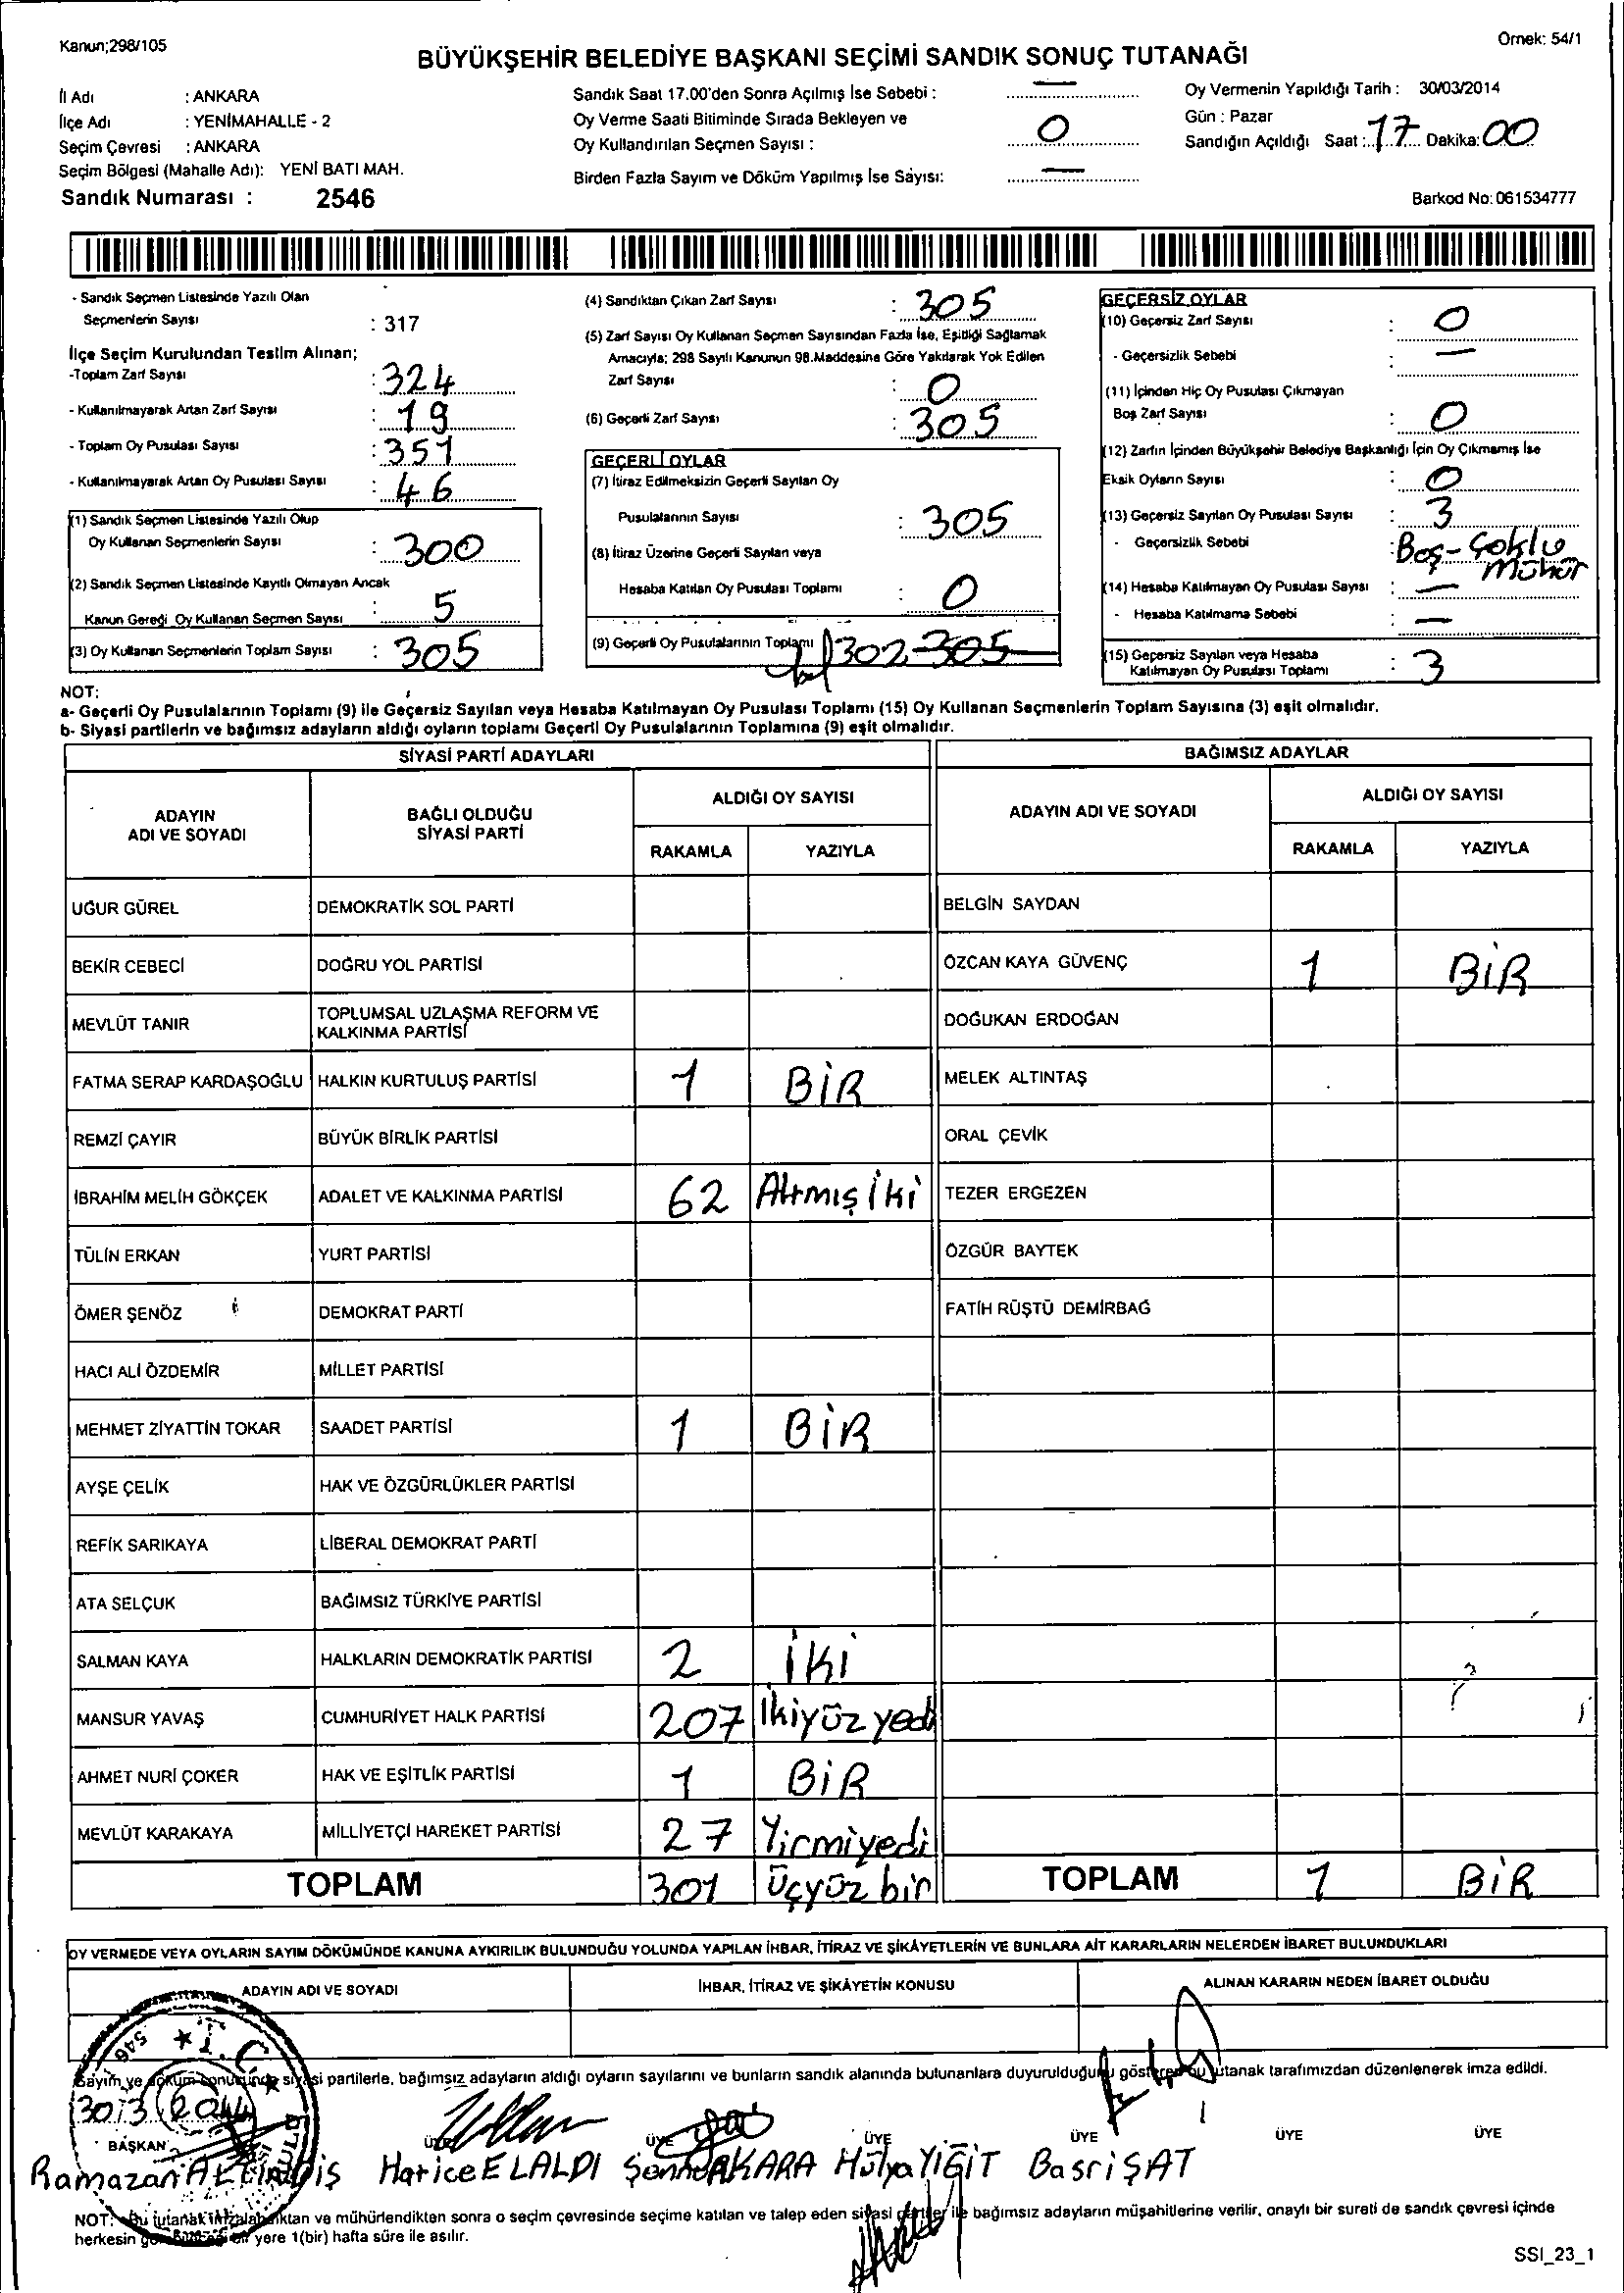 Kanun;298/105
Örnek: 54/1
BÜYÜKŞEHİR BELEDİYE BAŞKANI SEÇİMİ SANDIK SONUÇ TUTANAĞI
İl Adı : ANKARA
İlçe Adı : YENİMAHALLE - 2
Seçim Çevresi : ANKARA
Seçim Bölgesi (Mahalle Adı): YENİ BATI MAH.
Sandık Numarası : 2546
Sandık Saat 17.00'den Sonra Açılmış İse Sebebi : —
Oy Verme Saati Bitiminde Sırada Bekleyen ve
Oy Kullandırılan Seçmen Sayısı : 0
Birden Fazla Sayım ve Döküm Yapılmış İse Sayısı: —
Oy Vermenin Yapıldığı Tarih : 30/03/2014
Gün : Pazar
Sandığın Açıldığı Saat : 17 Dakika: 00
Barkod No: 061534777
- Sandık Seçmen Listesinde Yazılı Olan
Seçmenlerin Sayısı : 317
İlçe Seçim Kurulundan Teslim Alınan;
-Toplam Zarf Sayısı : 324
- Kullanılmayarak Artan Zarf Sayısı : 19
- Toplam Oy Pusulası Sayısı : 351
- Kullanılmayarak Artan Oy Pusulası Sayısı : 46
(1) Sandık Seçmen Listesinde Yazılı Olup
Oy Kullanan Seçmenlerin Sayısı : 300
(2) Sandık Seçmen Listesinde Kayıtlı Olmayan Ancak
Kanun Gereği Oy Kullanan Seçmen Sayısı : 5
(3) Oy Kullanan Seçmenlerin Toplam Sayısı : 305
(4) Sandıktan Çıkan Zarf Sayısı : 305
(5) Zarf Sayısı Oy Kullanan Seçmen Sayısından Fazla İse, Eşitliği Sağlamak
Amacıyla; 298 Sayılı Kanunun 98.Maddesine Göre Yakılarak Yok Edilen
Zarf Sayısı : 0
(6) Geçerli Zarf Sayısı : 305
GEÇERLİ OYLAR
(7) İtiraz Edilmeksizin Geçerli Sayılan Oy
Pusulalarının Sayısı : 305
(8) İtiraz Üzerine Geçerli Sayılan veya
Hesaba Katılan Oy Pusulası Toplamı : 0
(9) Geçerli Oy Pusulalarının Toplamı 302 305
GEÇERSİZ OYLAR
(10) Geçersiz Zarf Sayısı : 0
- Geçersizlik Sebebi : —
(11) İçinden Hiç Oy Pusulası Çıkmayan
Boş Zarf Sayısı : 0
(12) Zarfın İçinden Büyükşehir Belediye Başkanlığı İçin Oy Çıkmamış İse
Eksik Oyların Sayısı : 0
(13) Geçersiz Sayılan Oy Pusulası Sayısı : 3
- Geçersizlik Sebebi : Boş - Çoklu
mühür
(14) Hesaba Katılmayan Oy Pusulası Sayısı : —
- Hesaba Katılmama Sebebi : —
(15) Geçersiz Sayılan veya Hesaba
Katılmayan Oy Pusulası Toplamı : 3
NOT:
a- Geçerli Oy Pusulalarının Toplamı (9) ile Geçersiz Sayılan veya Hesaba Katılmayan Oy Pusulası Toplamı (15) Oy Kullanan Seçmenlerin Toplam Sayısına (3) eşit olmalıdır.
b- Siyasi partilerin ve bağımsız adayların aldığı oyların toplamı Geçerli Oy Pusulalarının Toplamına (9) eşit olmalıdır.
SİYASİ PARTİ ADAYLARI
ADAYIN
ADI VE SOYADI
BAĞLI OLDUĞU
SİYASİ PARTİ
ALDIĞI OY SAYISI
RAKAMLA YAZIYLA
UĞUR GÜREL DEMOKRATİK SOL PARTİ
BEKİR CEBECİ DOĞRU YOL PARTİSİ
MEVLÜT TANIR TOPLUMSAL UZLAŞMA REFORM VE
KALKINMA PARTİSİ
FATMA SERAP KARDAŞOĞLU HALKIN KURTULUŞ PARTİSİ 1 BİR
REMZİ ÇAYIR BÜYÜK BİRLİK PARTİSİ
İBRAHİM MELİH GÖKÇEK ADALET VE KALKINMA PARTİSİ 62 Altmış iki
TÜLİN ERKAN YURT PARTİSİ
ÖMER ŞENÖZ DEMOKRAT PARTİ
HACI ALİ ÖZDEMİR MİLLET PARTİSİ
MEHMET ZİYATTİN TOKAR SAADET PARTİSİ 1 BİR
AYŞE ÇELİK HAK VE ÖZGÜRLÜKLER PARTİSİ
REFİK SARIKAYA LİBERAL DEMOKRAT PARTİ
ATA SELÇUK BAĞIMSIZ TÜRKİYE PARTİSİ
SALMAN KAYA HALKLARIN DEMOKRATİK PARTİSİ 2 İKİ
MANSUR YAVAŞ CUMHURİYET HALK PARTİSİ 207 İkiyüz yedi
AHMET NURİ ÇOKER HAK VE EŞİTLİK PARTİSİ 1 BİR
MEVLÜT KARAKAYA MİLLİYETÇİ HAREKET PARTİSİ 27 Yirmiyedi
TOPLAM 301 üçyüz bir
BAĞIMSIZ ADAYLAR
ADAYIN ADI VE SOYADI
ALDIĞI OY SAYISI
RAKAMLA YAZIYLA
BELGİN SAYDAN
ÖZCAN KAYA GÜVENÇ 1 BİR
DOĞUKAN ERDOĞAN
MELEK ALTINTAŞ
ORAL ÇEVİK
TEZER ERGEZEN
ÖZGÜR BAYTEK
FATİH RÜŞTÜ DEMİRBAĞ
TOPLAM 1 BİR
OY VERMEDE VEYA OYLARIN SAYIM DÖKÜMÜNDE KANUNA AYKIRILIK BULUNDUĞU YOLUNDA YAPILAN İHBAR, İTİRAZ VE ŞİKÂYETLERİN VE BUNLARA AİT KARARLARIN NELERDEN İBARET BULUNDUKLARI
ADAYIN ADI VE SOYADI İHBAR, İTİRAZ VE ŞİKÂYETİN KONUSU ALINAN KARARIN NEDEN İBARET OLDUĞU
T.C.
Sayım ve döküm konusunda siyasi partilerle, bağımsız adayların aldığı oyların sayılarını ve bunların sandık alanında bulunanlara duyurulduğunu gösteren bu tutanak tarafımızdan düzenlenerek imza edildi.
30/3/2014
BAŞKAN ÜYE ÜYE ÜYE ÜYE ÜYE ÜYE
Ramazan Hatice ELALDI AKARA Hülya YİĞİT Basri ŞAT
NOT: Bu tutanak imzalandıktan ve mühürlendikten sonra o seçim çevresinde seçime katılan ve talep eden siyasi partiler ile bağımsız adayların müşahitlerine verilir, onaylı bir sureti de sandık çevresi içinde
herkesin görebileceği bir yere 1(bir) hafta süre ile asılır.
SSI_23_1